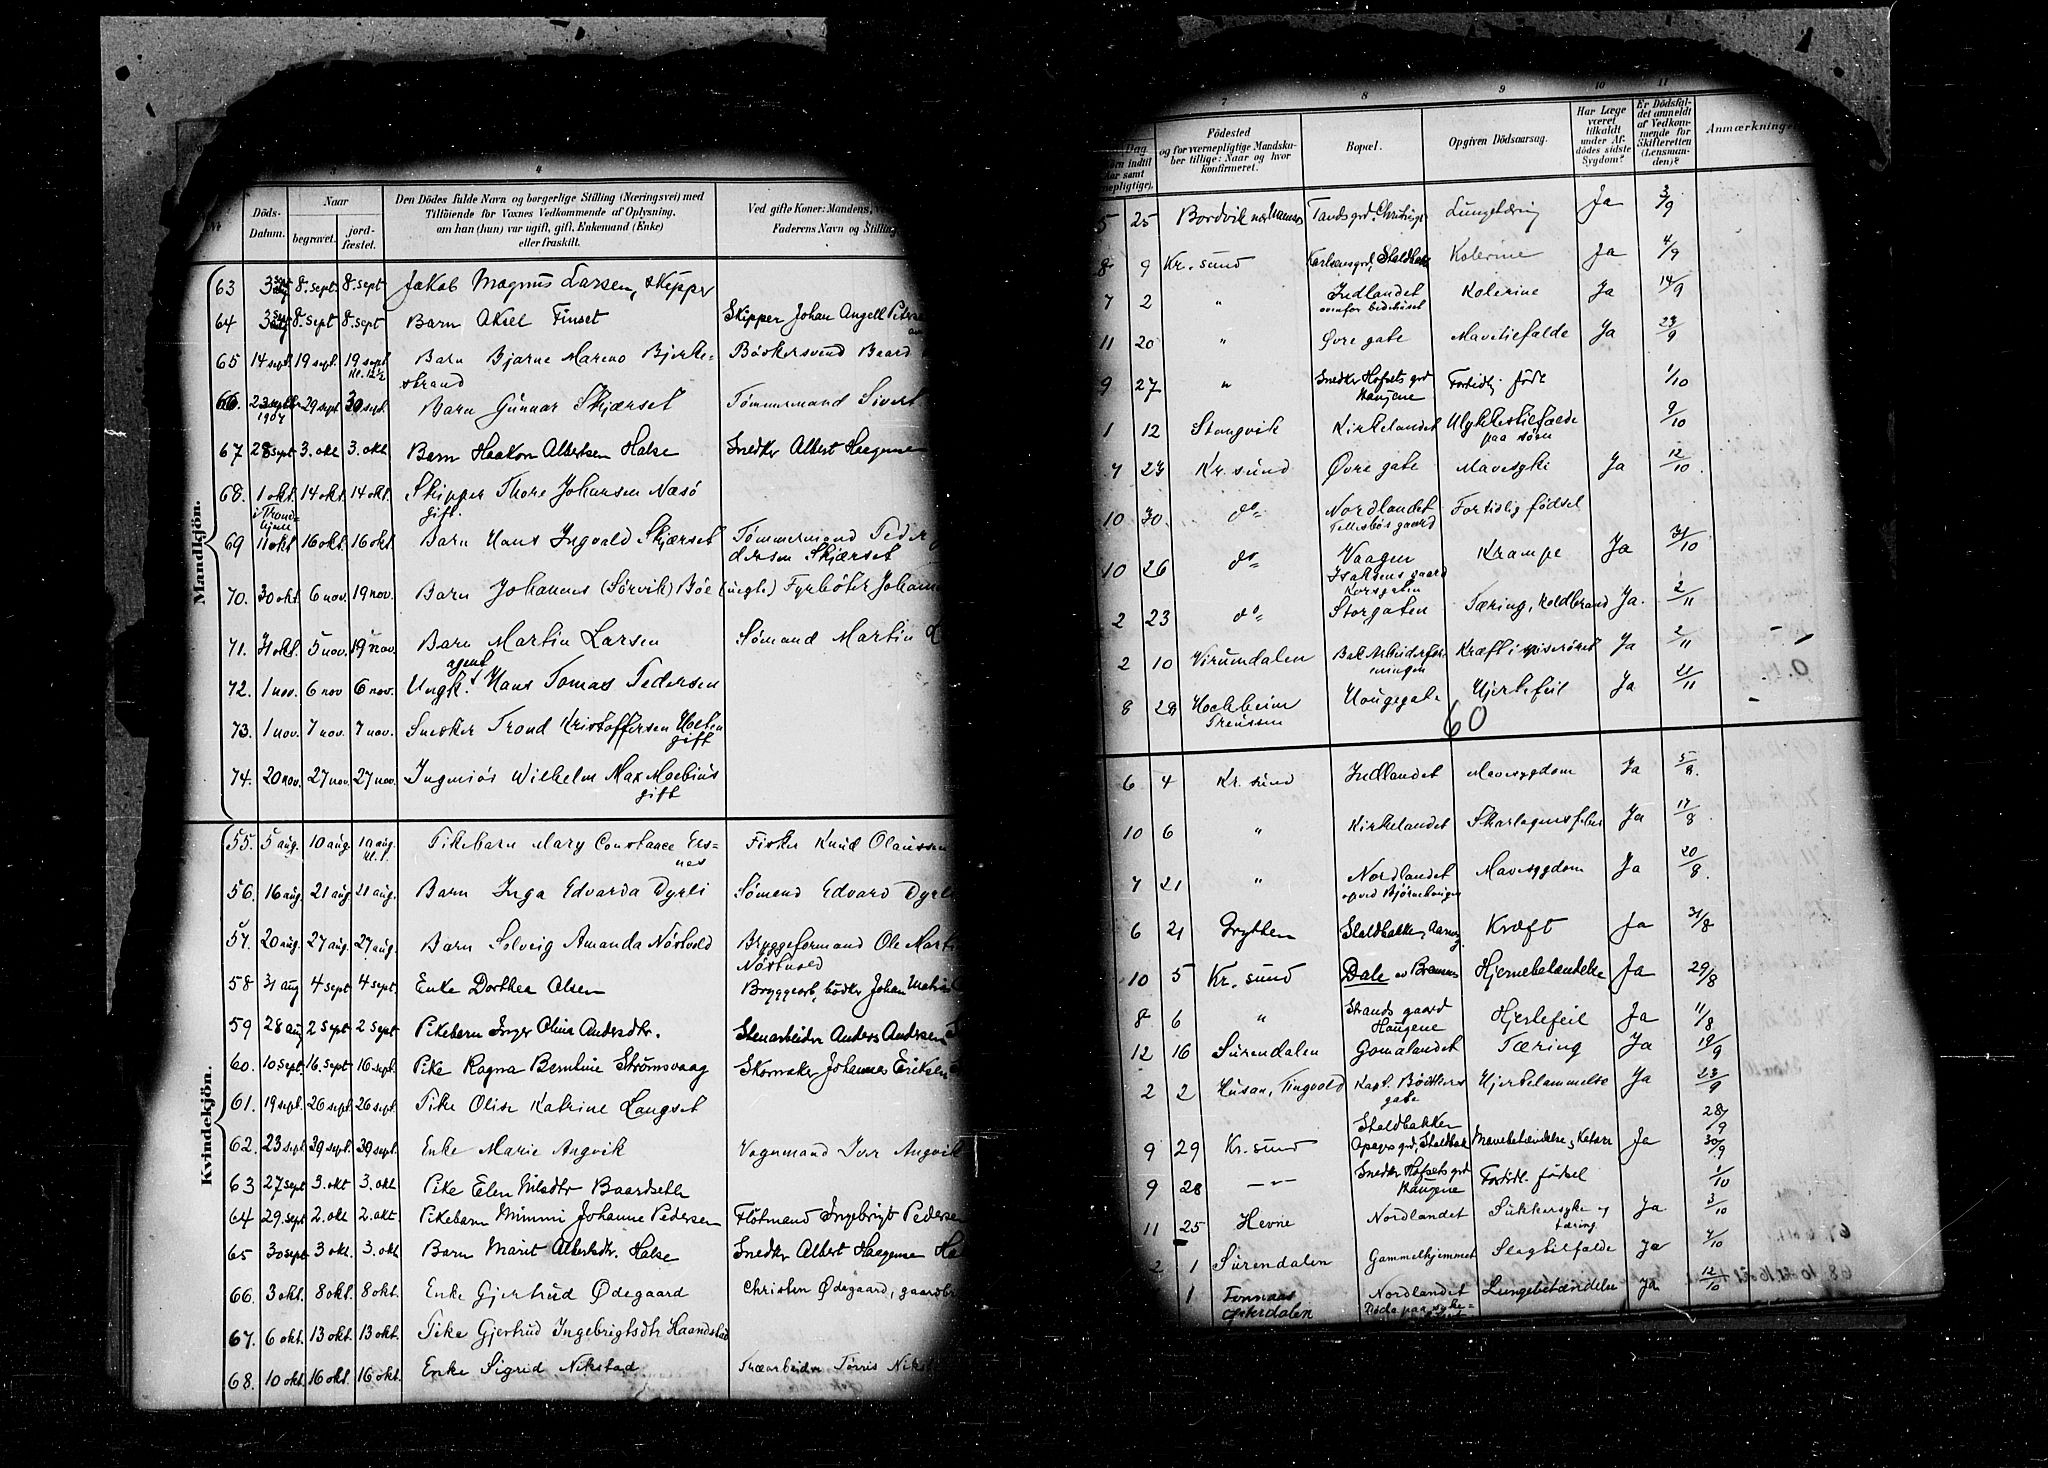 3
4
Nr.
Döds-
Datum.
Naar
begravet.
jord-
fæstet.
Den Dödes fulde Navn og borgerlige Stilling (Næringsvei) med
Tilföiende for Voxnes Vedkommende af Oplysning,
om han (hun) var ugift, gift, Enkemand (Enke)
eller fraskilt.
Ved gifte Koner: Mandens,
Faderens Navn og Stilling
Mandkjön.
63 8. sept 8. sept Jakob Magnus Larsen, skipper
64 8. sept 8. sept Barn Aksel Tinset Skipper Johan Angell
65 14 sept. 19 sept. 19 sept. Barn Bjarne Mareno Bjerke- Bödkersvend Baard
kl. 12½ strand
66. 23 septbr 29 sept 30 sept. Barn Gunnar Skjærset Tömmermand Sivert
1904
67 28 sept 3. okt 3. okt Barn Haakon Albertsen Halse Snedker Albert Haagense
68. 1 okt. 14 okt. 14 okt. Skipper Thore Johansen Næsö
i Trond-
hjem gift.
69 11 okt 16 okt. 16 okt Barn Hans Ingvald Skjærset Tömmermand Peder
dersen Skjærset
70. 30 okt. 6 nov. 19 nov. Barn Johannes (Sörvik) Böe (uegte) Fyrböter Johann
71. 31 okt. 5 nov. 19 nov. Barn Martin Larsen Sömand Martin L
agent
72. 1 nov. 6 nov 6 nov. Ungk. Hans Tomas Pedersen
73. 1 nov. 7 nov. 7 nov. Snedker Trond Kristoffersen Holten
gift
74. 20 nov. 27 nov. 27 nov. Ingeniör Wilhelm Max Moebius
gift
Kvindekjön.
55. 5 aug. 10 aug 10 aug. Pikebarn Mary Constance Ers- Fisker Knud Olaussen
kl. 1. nes
56. 16 aug. 21 aug 21 aug. Barn Inga Edvarda Dyrli Sömand Edvard Dyrli
57. 20 aug. 27 aug. 27 aug. Barn Solveig Amanda Nöstvold Bryggeformand Ole Mart
Nöstvold
58 31 aug 4 sept 4 sept. Enke Dorthea Olsen Bryggearb, bödker Johan
59 28 aug 2 sept 2 sept Pikebarn Inger Olina Andersdtr. Stenarbeider Anders Andersen
60. 10 sept. 16. sept 16 sept. Pike Ragna Berntine Strömsvaag Skomaker Johannes Eriksen
61. 19 sept. 26 sept. 26 sept. Pike Olise Katrine Langset
62. 23 sept. 29 sept. 29 sept. Enke Marie Angvik Vognmand Iver Angvik
63 27 sept 3. okt 3. okt Pike Elen Nilsdtr Baardseth
64 29. sept 2. okt 2. okt. Pikebarn Mimmi Johanne Pedersen Flötmand Ingebrigt Pedersen
65 30 sept 3 okt. 3. okt Barn Marit Albertsdtr. Halse Snedker Albert Haagense Ha
66. 3 okt 8 okt. 8 okt. Enke Gjertrud Ødegaard Christen Ødegaard, gaardbr
67. 6 okt 13 okt. 13 okt. Pike Gjertrud Ingebrigtsdtr Haandstad
68. 10 okt. 16 okt. 16 okt. Enke Sigrid Nikstad Træarbeider Törris Nikst
7
8
9
10
11
Dag
Födested
og for værnepligtige Mandsku-
ber tillige: Naar og hvor
konfirmeret.
Bopæl.
Opgiven Dödsaarsag.
Har Læge
været
tilkaldt
under Af-
dödes sidste
Sygdom?
Er Dödsfal-
det anmeldt
af Vedkom-
mende for
Skifteretten
(Lensman-
den)?
Anmærkninge
5 25 Lungetæring Ja 3/9
8 9 Kr. sund Karlsensgrd, Staldbak Kolerine Ja 4/9
7 2 " Indlandet Kolerine Ja 14/9
ovenfor bedehuset
11 20 " Øvre gate Mavetilfælde Ja 23/9
9 27 " Snedker Hofsets grd Fortidlig födt 1/10
Haugene
1 12 Stangvik Kirkelandet Ulykkestilfælde 9/10
paa sjöen
7 23 Kr. sund Øvre gate Mavesyke Ja 12/10
10 30. do Nordlandet Fortidlig födsel
gaard
10 26 do Vaagen Krampe Ja 31/10
Isaksens gaard
Korsgaten
2 23 do Storgaten Tæring, koldbrand Ja. 2/11
2 10 Virumdalen Kræft i spiserøret Ja 2/11
8 28 Hochheim Haugegate Hjertefeil Ja 21/11
Preussen
60
6 4 Kr. sund Indlandet Mavesygdom Ja 5/8.
10 6 " Kirkelandet Skarlagensfeber Ja 17/8
7 21 " Nordlandet Mavesygdom Ja 20/8.
opved Bjørnehaugen
6 21 Grytten Staldbakken, Kræft Ja 31/8
10 5 Kr. sund Dale Hjernebetændelse Ja 29/8
8 6 " Strands gaard Hjertefeil Ja 11/8
Haugene
12 16 Surendalen Gomalandet Tæring Ja 19/9
2 2 Husan, Tingvold Kapt. Bödtkers Hjertelammelse Ja 23/9
gate
Staldbakken 28/9
9 29 Kr. sund Staldbak Mavebetændelse, Katar Ja 30/9
9 28 —"— Snedker Hofsets grd Fortidl. födsel 1/10
Haugene
11 25 Hevne Nordlandet Sukkersyke og Ja 3/10
tæring
2 1 Surendalen Gammelhjemmet Slagtilfælde Ja 4/10
1 Tønnaas Nordlandet Lungebetændelse Ja 12/10
Østerdalen Döde paa syke=